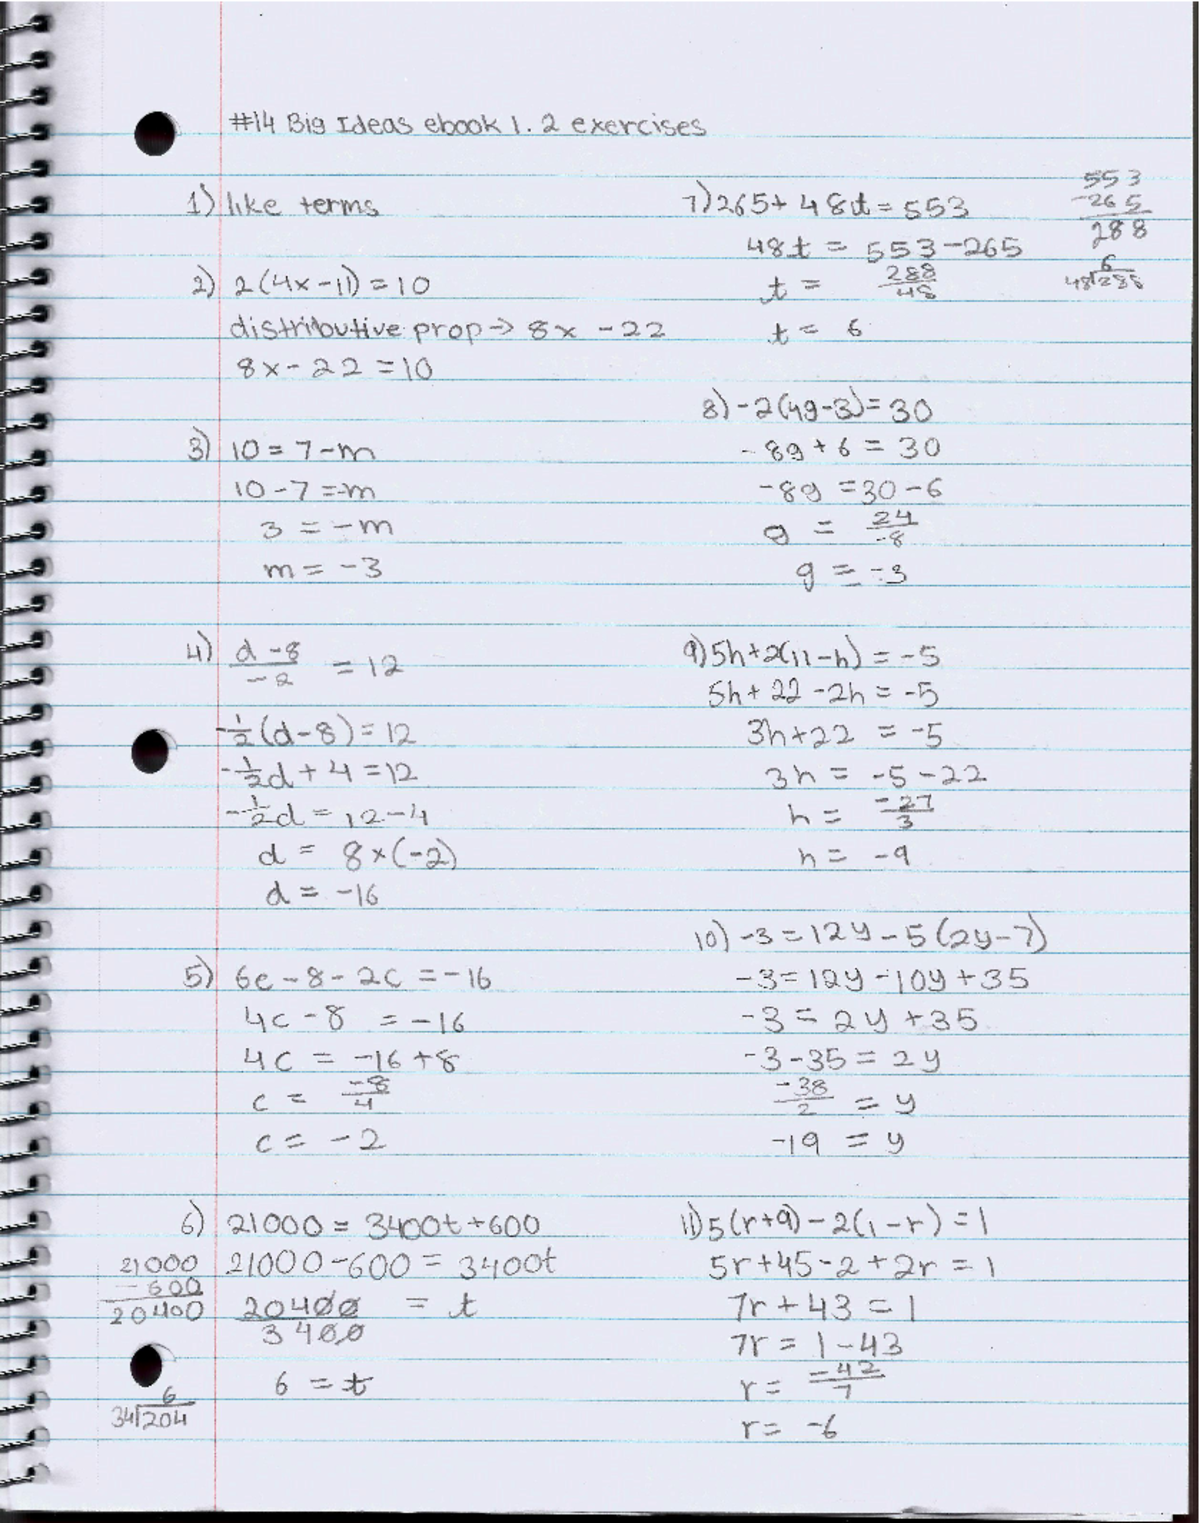 #14 Big Ideas ebook 1.2 exercises
1) like terms
2) 2(4x-11)=10
distributive prop→ 8x -22
8x-22=10
3) 10=7-m
10-7=-m
3 = -m
m= -3
4) d-8/-2 = 12
-1/2(d-8)=12
-1/2d+4=12
-1/2d=12-4
d = 8×(-2)
d = -16
5) 6c-8-2c=-16
4c-8 = -16
4c = -16+8
c = -8/4
c= -2
6) 21000 = 3400t+600
21000-600=3400t
20400/3400 = t
6 = t
21000
-600
20400
6
34|204
7) 265+48t=553
48t = 553-265
t = 288/48
t = 6
553
-265
288
6
48|288
8) -2(4g-3)=30
-8g+6=30
-8g=30-6
g = 24/-8
g = -3
9) 5h+2(11-h)=-5
5h+22-2h=-5
3h+22 = -5
3h = -5-22
h = -27/3
h= -9
10) -3=12y-5(2y-7)
-3=12y-10y+35
-3=2y+35
-3-35=2y
-38/2 = y
-19 = y
11) 5(r+9)-2(1-r)=1
5r+45-2+2r=1
7r+43=1
7r=1-43
r= -42/7
r= -6